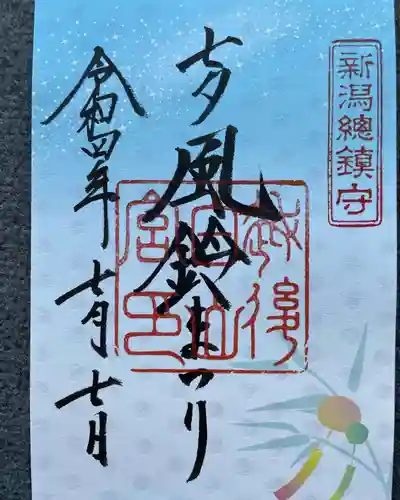 新潟總鎮守
七夕風鈴まつり
令和四年七月七日
越後白山宮印